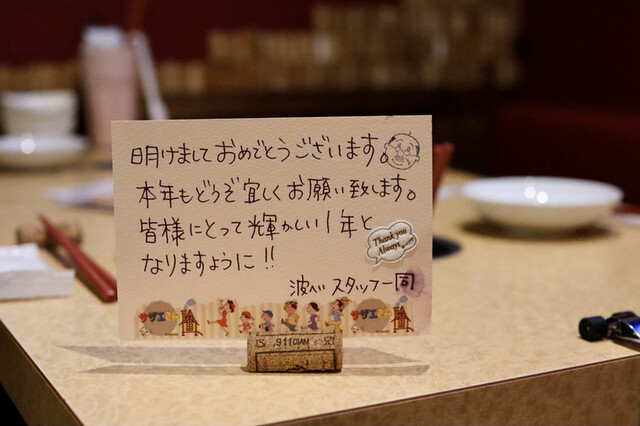 明けましておめでとうございます。
本年もどうぞ宜しくお願い致します。
皆様にとって輝かしい1年と
なりますように!!
Thank you
Always
スタッフ一同
サザエさん
サザエさん